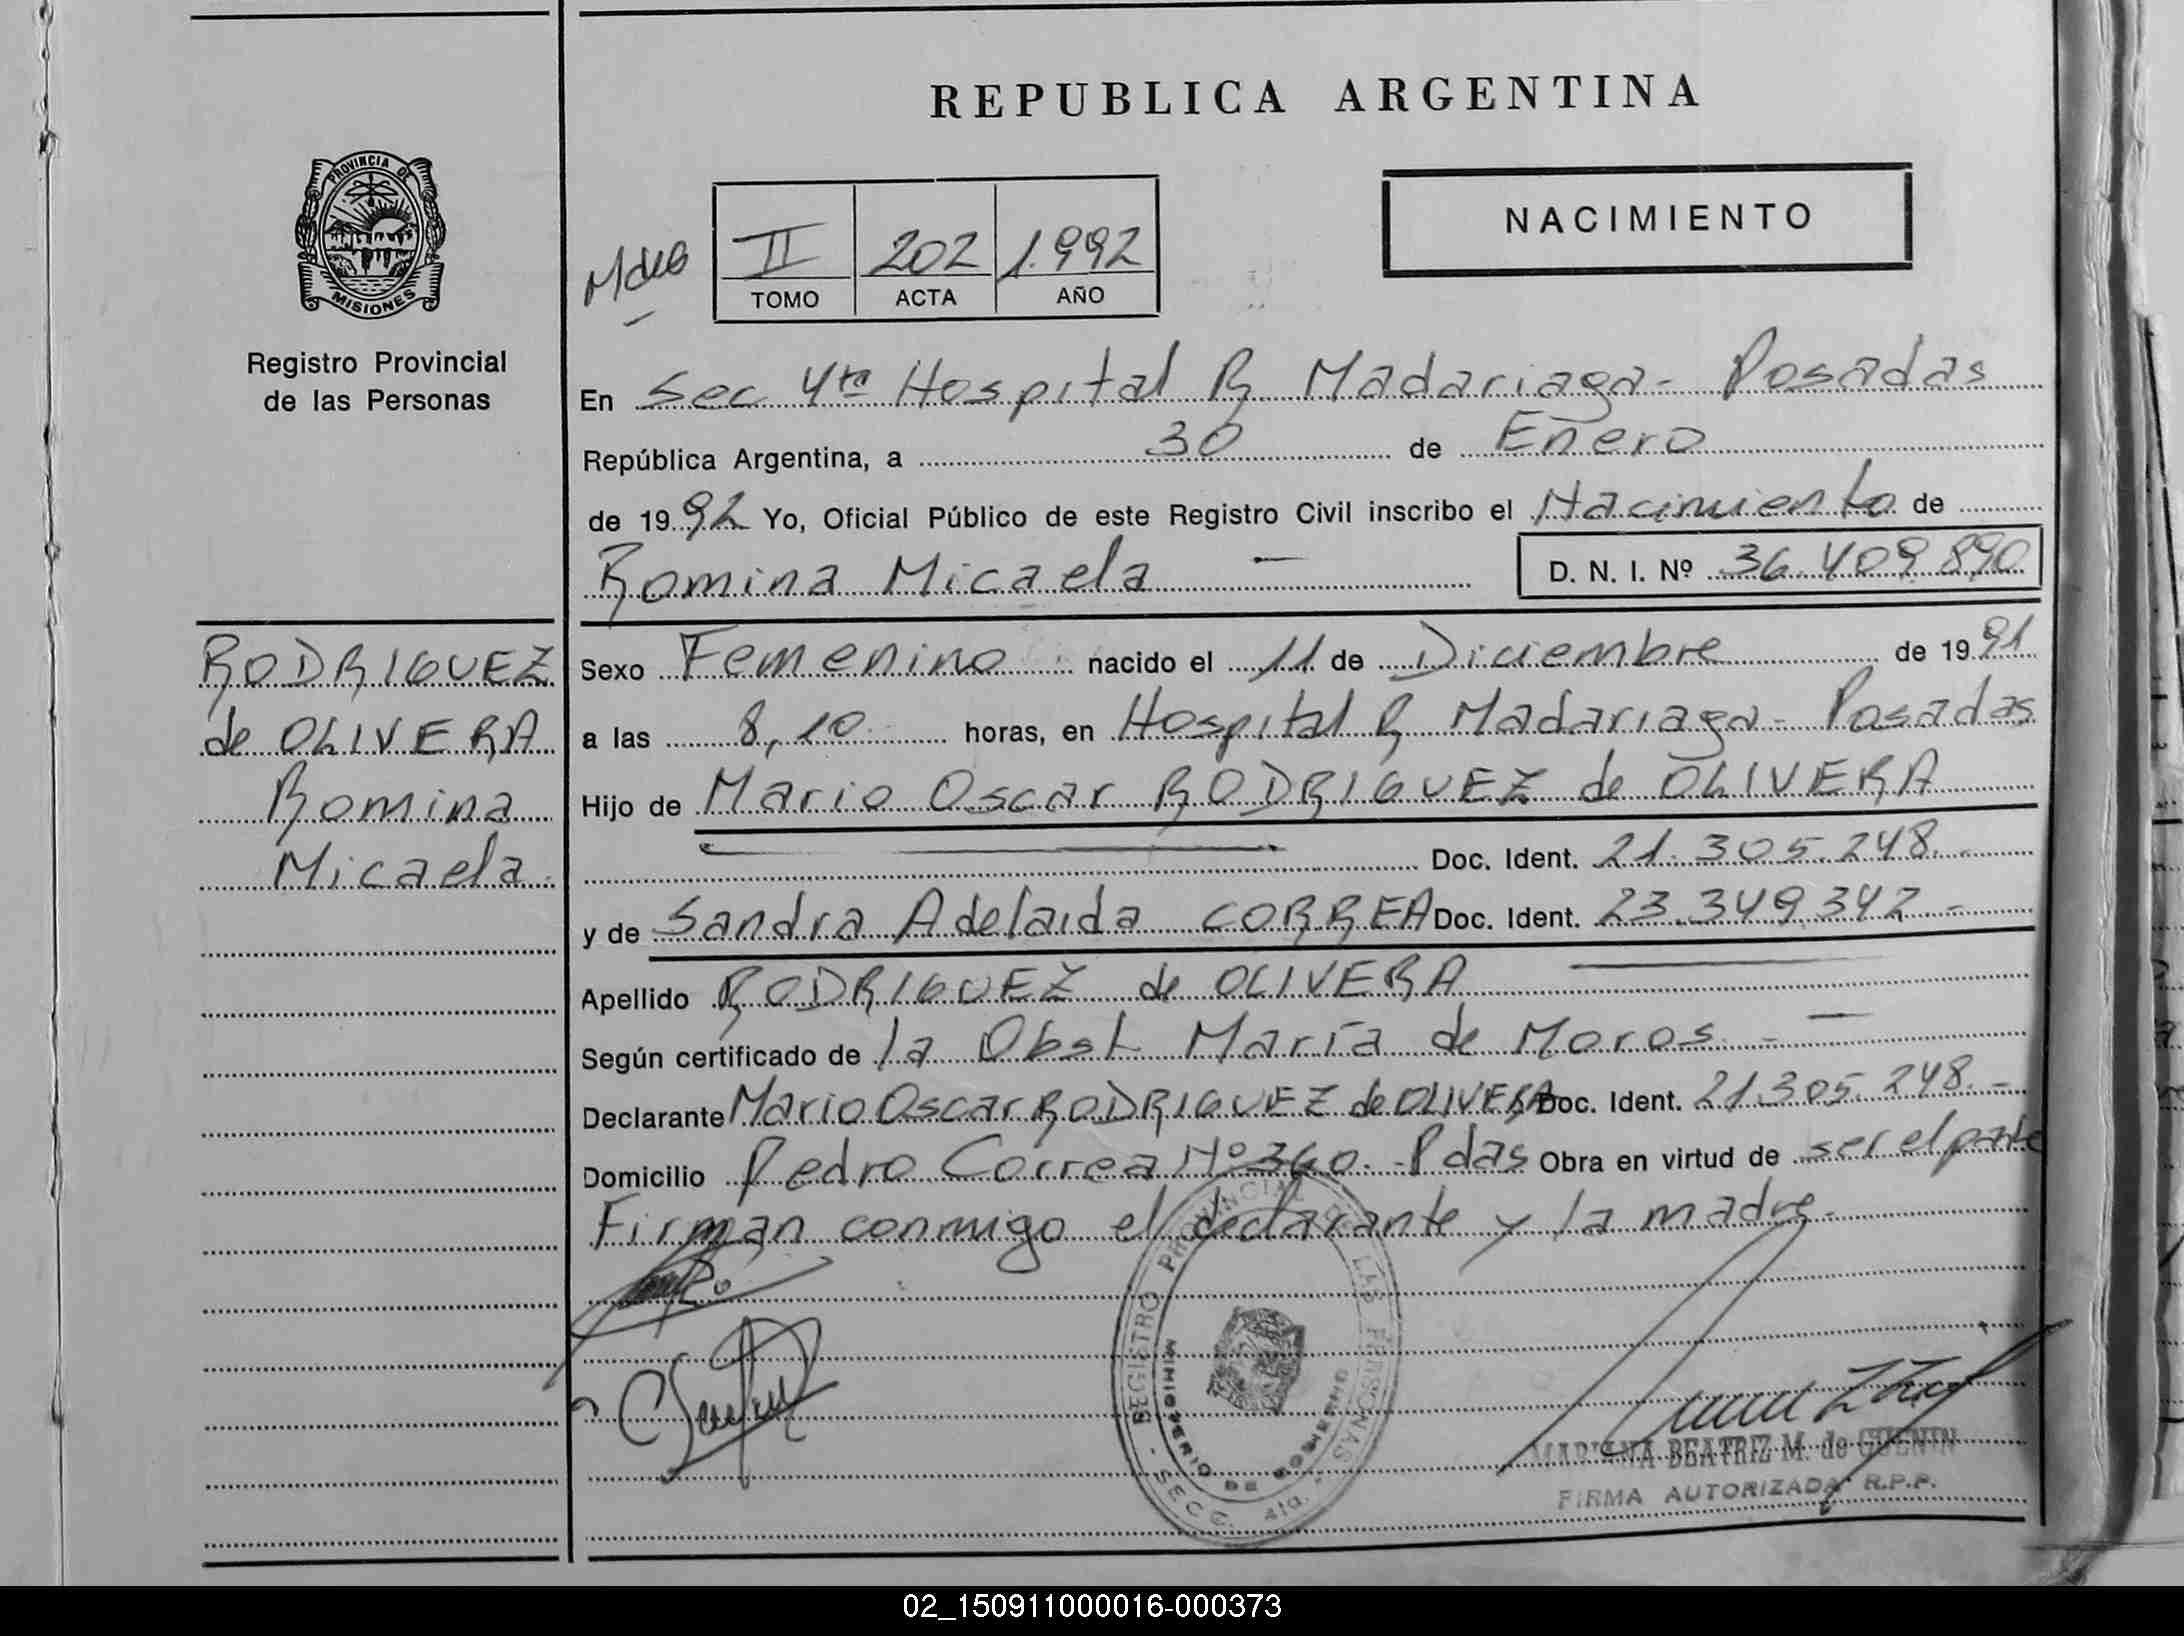 REPUBLICA ARGENTINA
PROVINCIA DE
MISIONES
Registro Provincial
de las Personas
NACIMIENTO
II 202 1.992
TOMO ACTA AÑO
En Sec 4ta Hospital R Madariaga - Posadas
República Argentina, a 30 de Enero
de 1992 Yo, Oficial Público de este Registro Civil inscribo el Nacimiento de
Romina Micaela — D. N. I. Nº 36.409.890
RODRIGUEZ
de OLIVERA
Romina
Micaela.
Sexo Femenino nacido el 11 de Diciembre de 1991
a las 8,10 horas, en Hospital R Madariaga - Posadas
Hijo de Mario Oscar RODRIGUEZ de OLIVERA
Doc. Ident. 21.305.248.-
y de Sandra Adelaida CORREA Doc. Ident. 23.349.342.-
Apellido RODRIGUEZ de OLIVERA
Según certificado de la Obst María de Moros.-
Declarante Mario Oscar RODRIGUEZ de OLIVERA Doc. Ident. 21.305.248.-
Domicilio Pedro Correa Nº 360. - Pdas Obra en virtud de ser el padre
Firman conmigo el declarante y la madre.
REGISTRO PROVINCIAL DE LAS PERSONAS
MINISTERIO DE GOBIERNO
- SECC. 4ta. -
MARIANA BEATRIZ M. de GUENIN
FIRMA AUTORIZADA R.P.P.
02_150911000016-000373